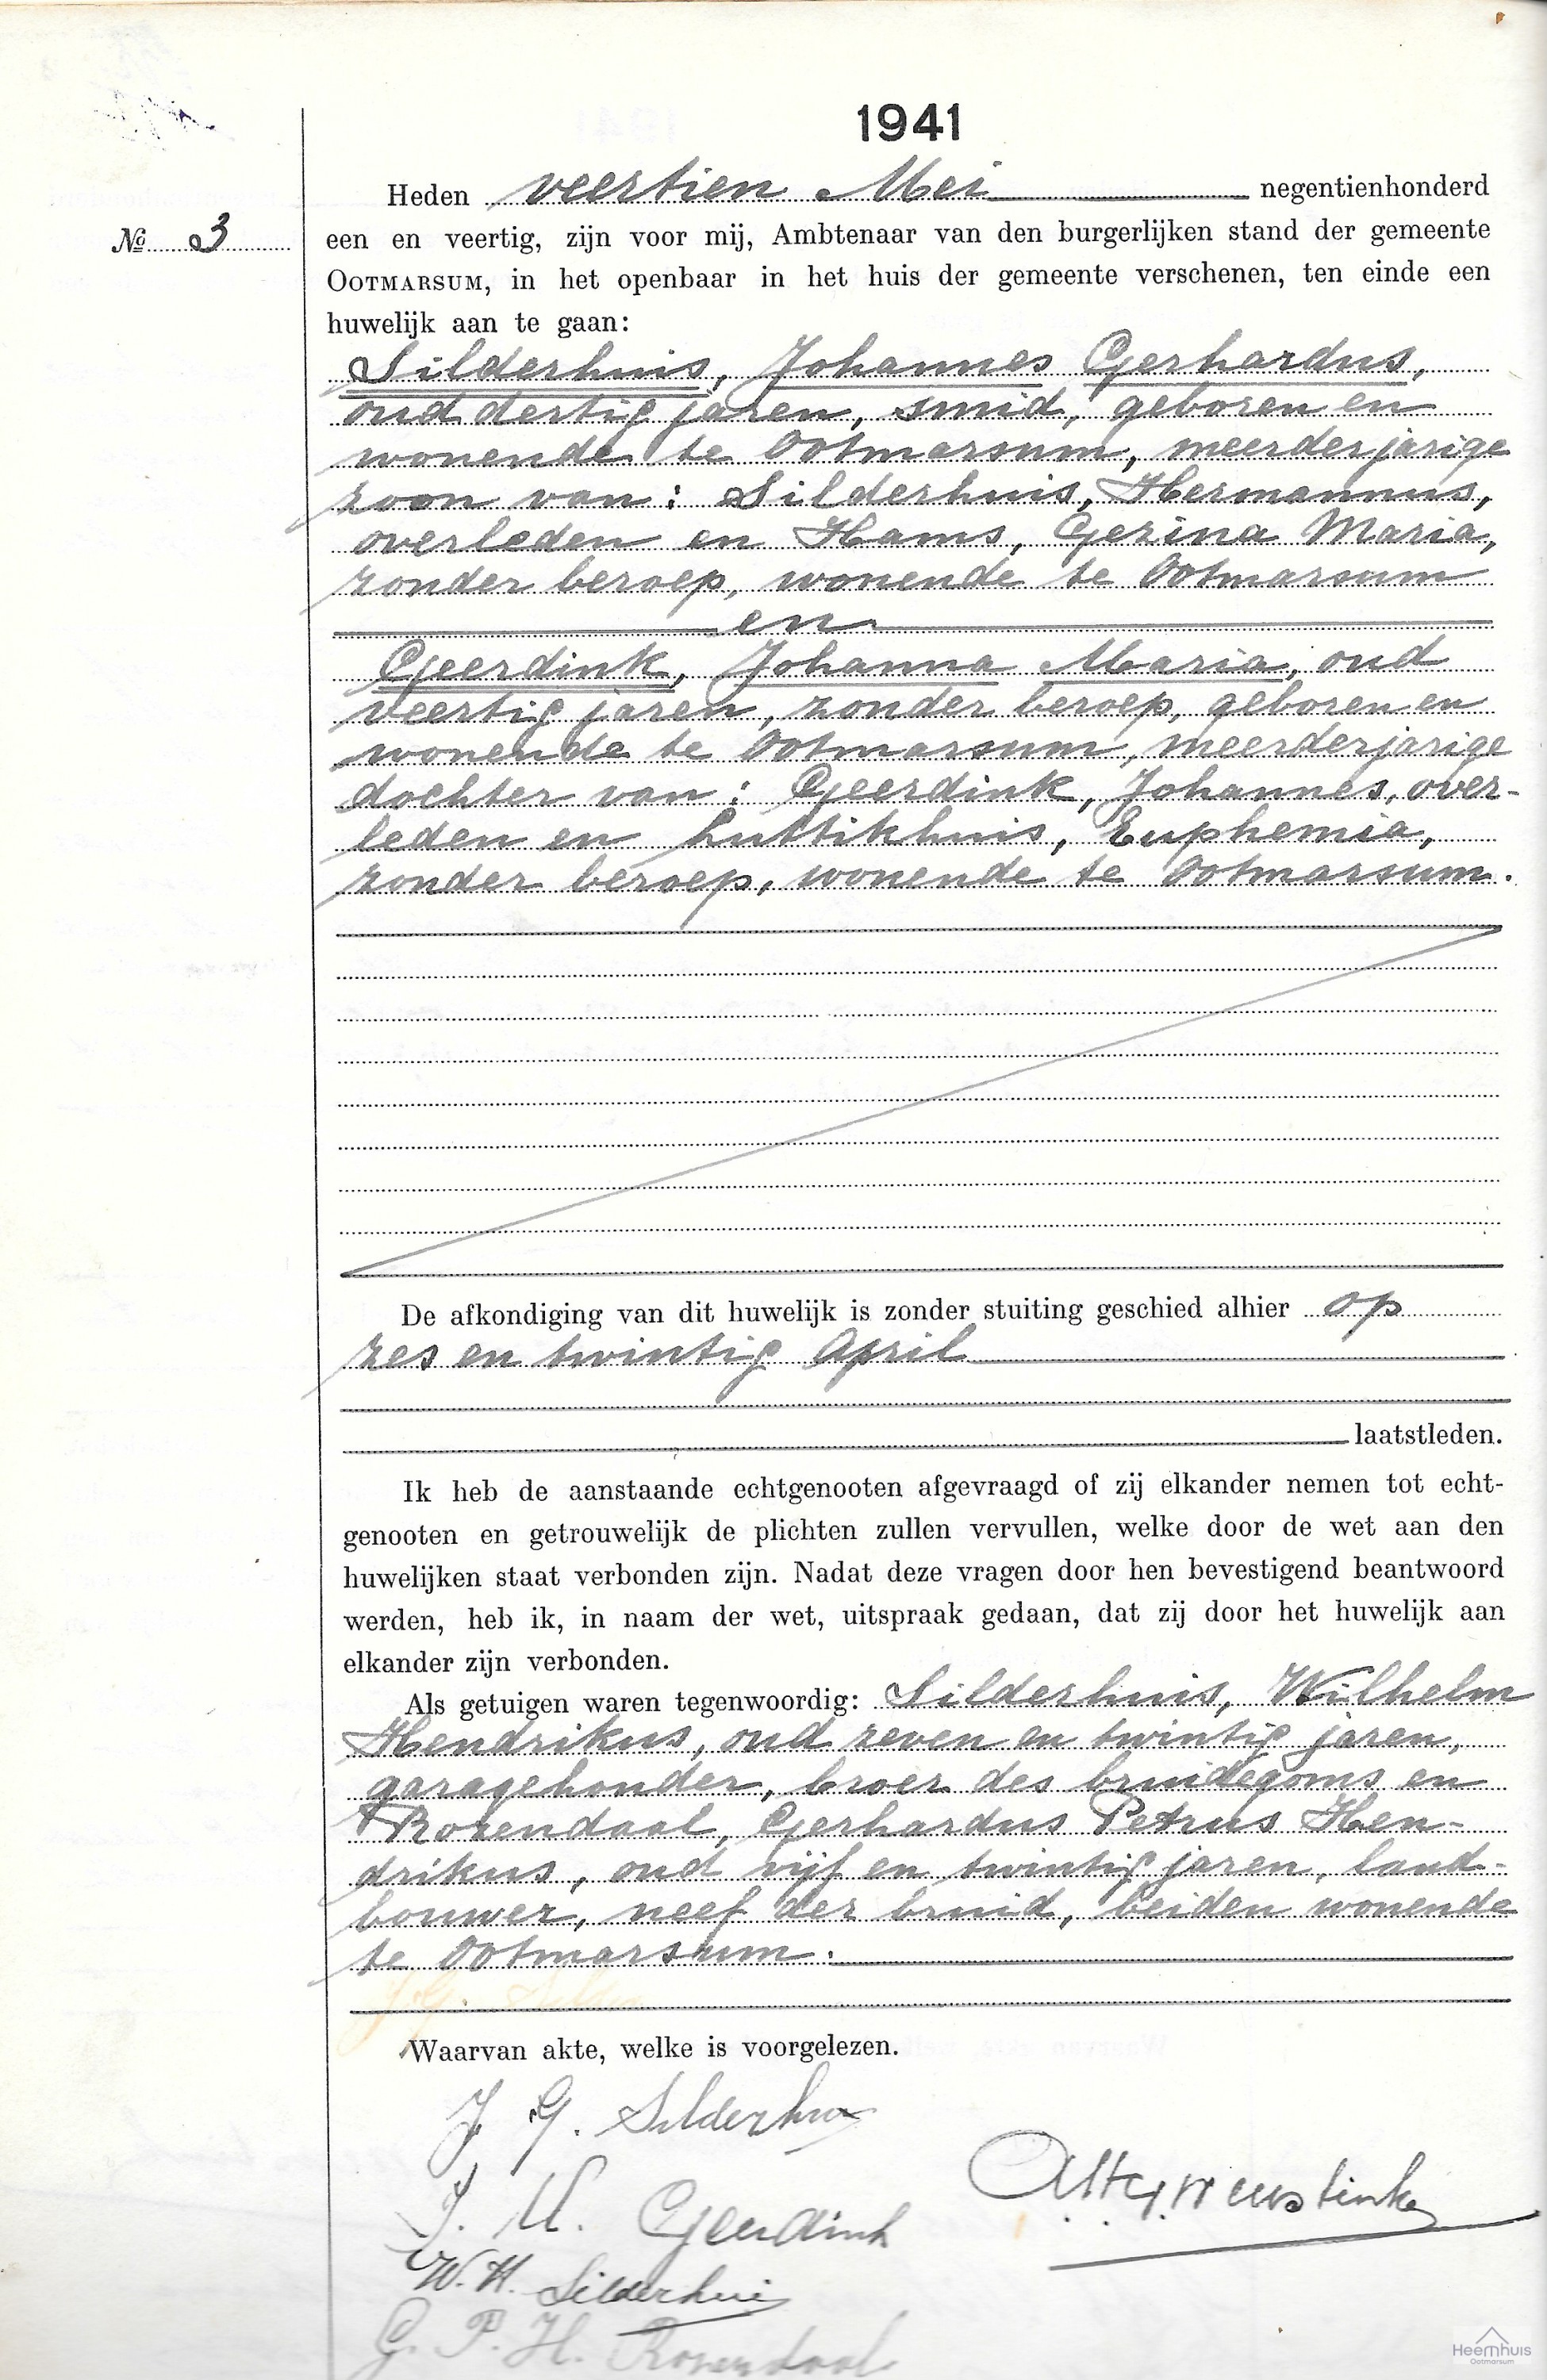 1941
Heden veertien Mei negentienhonderd
No 3
een en veertig, zijn voor mij, Ambtenaar van den burgerlijken stand der gemeente
OOTMARSUM, in het openbaar in het huis der gemeente verschenen, ten einde een
huwelijk aan te gaan:
Silderhuis, Johannes Gerhardus,
oud dertig jaren, smid, geboren en
wonende te Ootmarsum, meerderjarige
zoon van: Silderhuis, Hermannus,
overleden en Hams, Gezina Maria,
zonder beroep, wonende te Ootmarsum
en
Geerdink, Johanna Maria, oud
veertig jaren, zonder beroep, geboren en
wonende te Ootmarsum, meerderjarige
dochter van: Geerdink, Johannes, over-
leden en Luttikhuis, Euphemia,
zonder beroep, wonende te Ootmarsum.
De afkondiging van dit huwelijk is zonder stuiting geschied alhier op
zes en twintig April
laatstleden.
Ik heb de aanstaande echtgenooten afgevraagd of zij elkander nemen tot echt-
genooten en getrouwelijk de plichten zullen vervullen, welke door de wet aan den
huwelijken staat verbonden zijn. Nadat deze vragen door hen bevestigend beantwoord
werden, heb ik, in naam der wet, uitspraak gedaan, dat zij door het huwelijk aan
elkander zijn verbonden.
Als getuigen waren tegenwoordig: Silderhuis, Wilhelm
Hendrikus, oud zeven en twintig jaren,
garagehouder, broer des bruidegoms en
Rozendaal, Gerhardus Petrus Hen-
drikus, oud vijf en twintig jaren, land-
bouwer, neef der bruid, beiden wonende
te Ootmarsum.
Waarvan akte, welke is voorgelezen.
J G. Silderhuis
J. M. Geerdink
W. H. Silderhuis
G. P. H. Rozendaal
Heemhuis
Ootmarsum